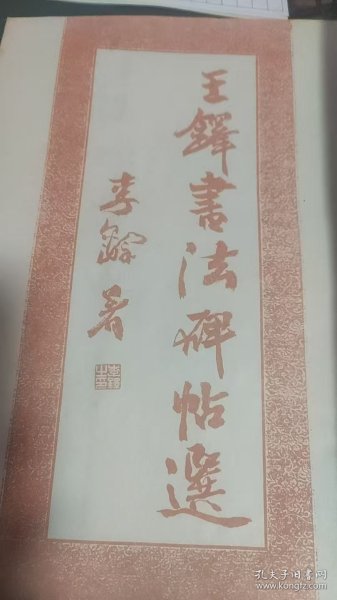 王鐸書法碑帖選
李鐸署
孔夫子旧书网
www.kongfz.com